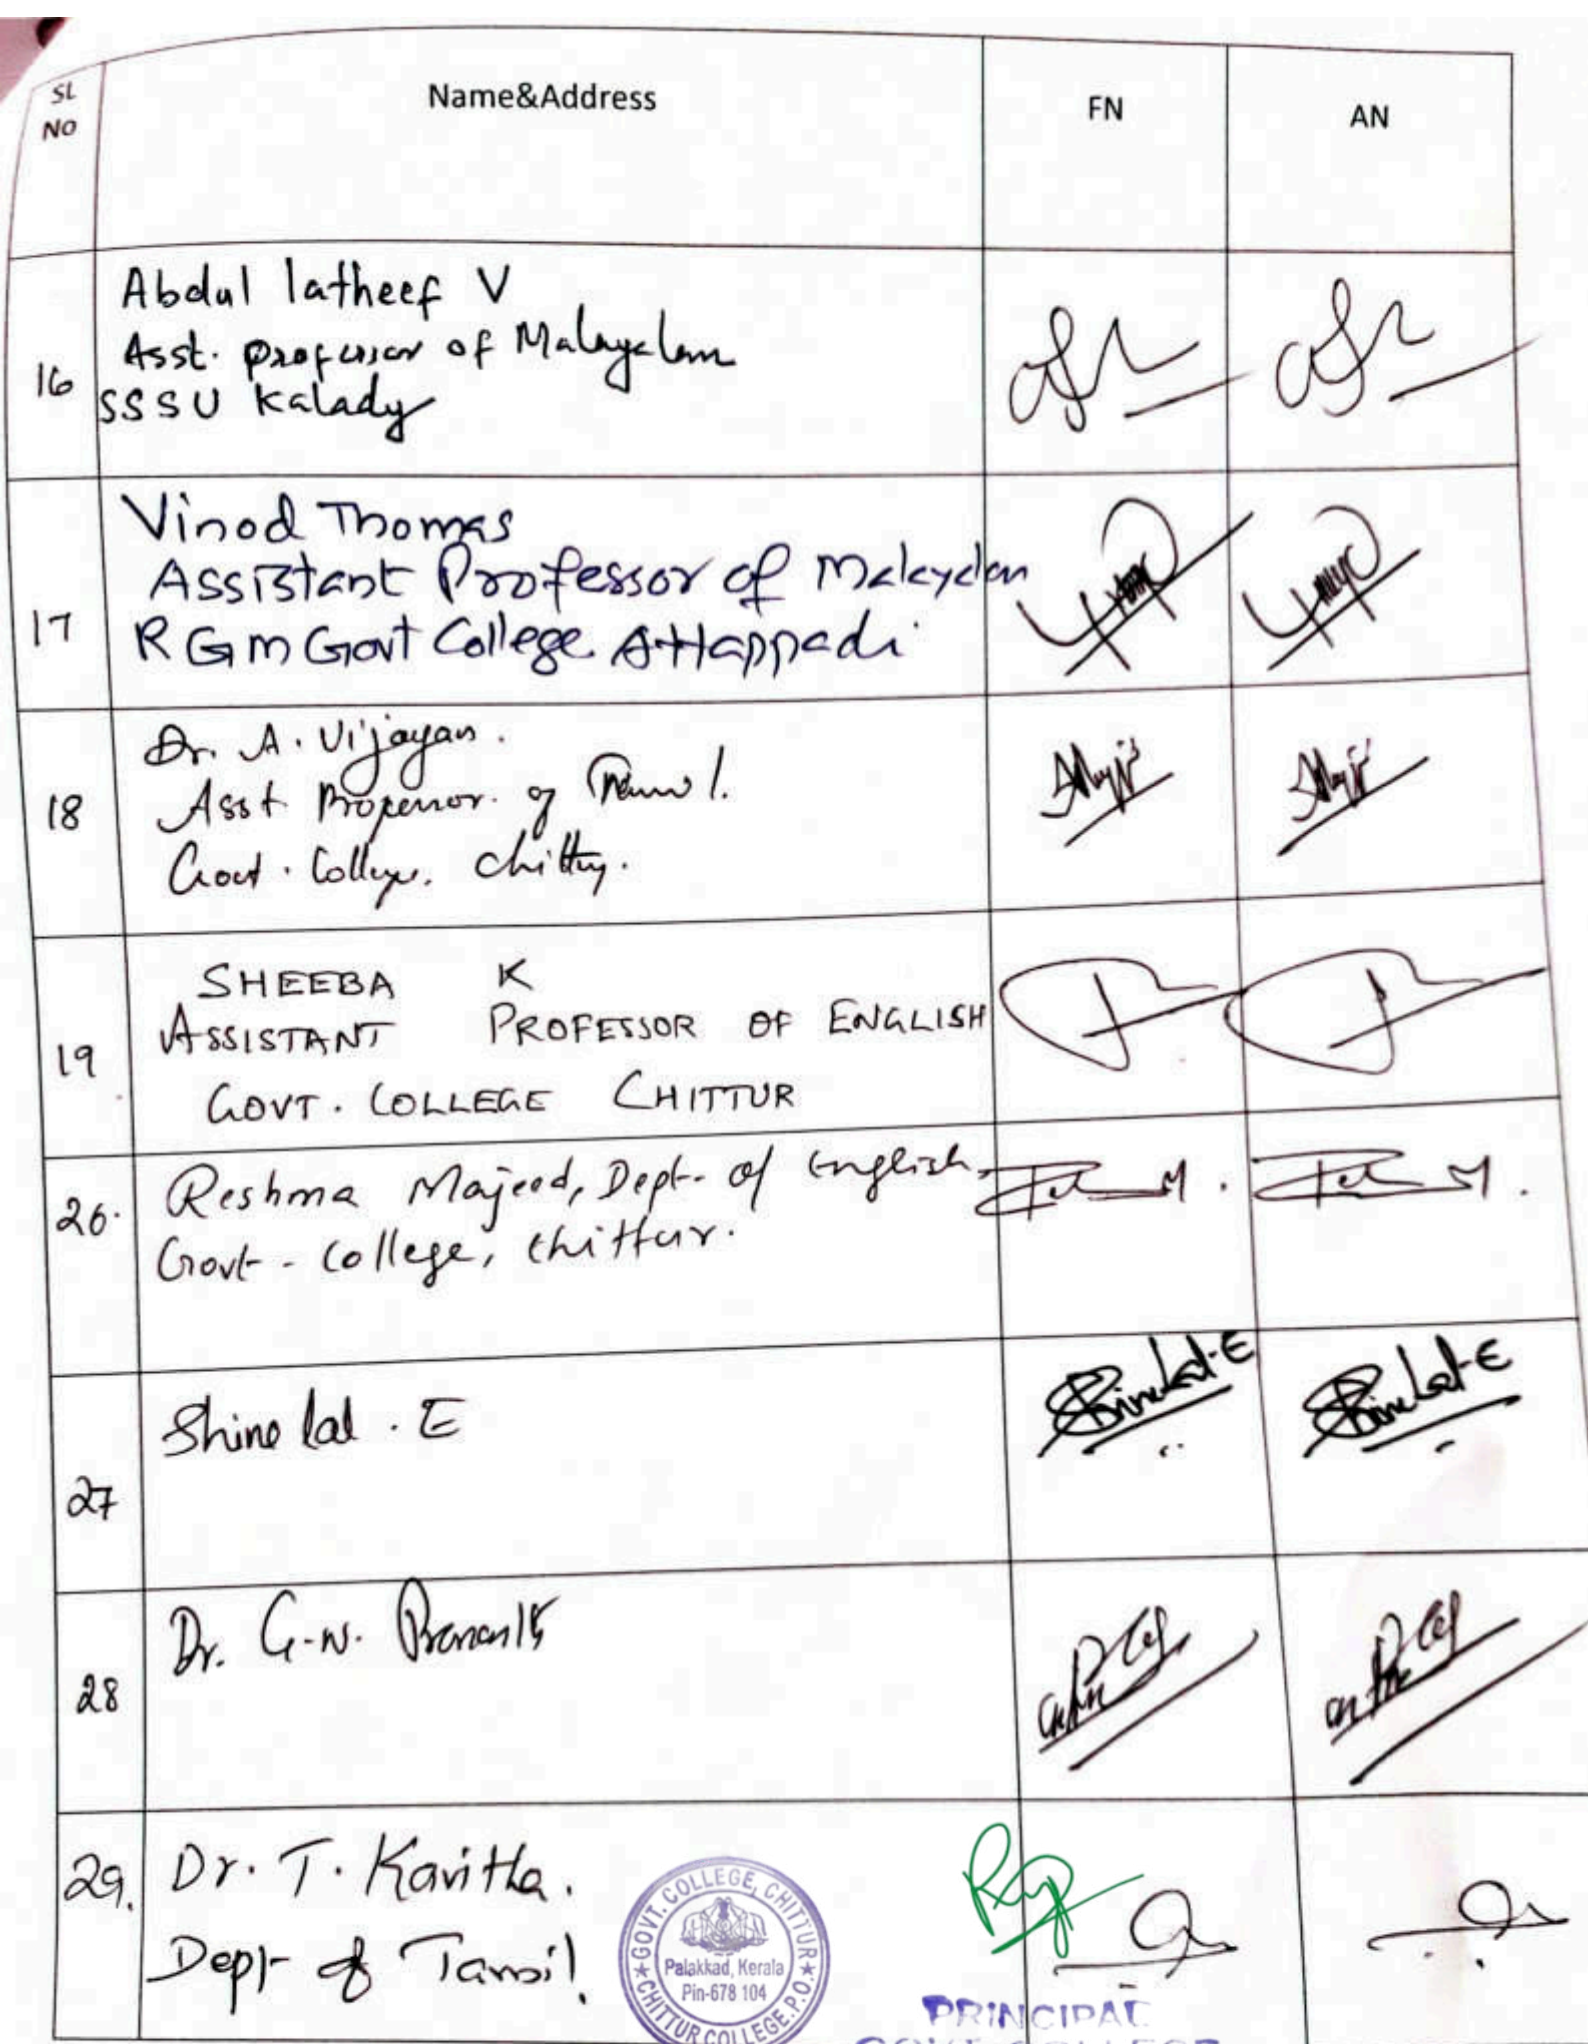 SL NO Name&Address FN AN
Abdul latheef V
Asst. professor of Malayalam
16
SSSU Kalady
Vinod Thomas
Assistant Professor of Malayalam
17 RGM Govt College Attappadi
Dr. A. Vijayan.
18 Asst Professor of Tamil.
Govt. College. Chittur.
SHEEBA K
ASSISTANT PROFESSOR OF ENGLISH
19
GOVT. COLLEGE CHITTUR
Reshma Majeed, Dept. of English,
26. Govt. College, Chittur.
Shine lal . E Shinelal-E Shinelal-E
27
Dr. G.N.
28
29. Dr. T. Kavitha.
Dept of Tamil.
GOVT. COLLEGE, CHITTUR
Palakkad, Kerala
Pin-678 104
CHITTUR COLLEGE.P.O.
PRINCIPAL
GOVT COLLEGE